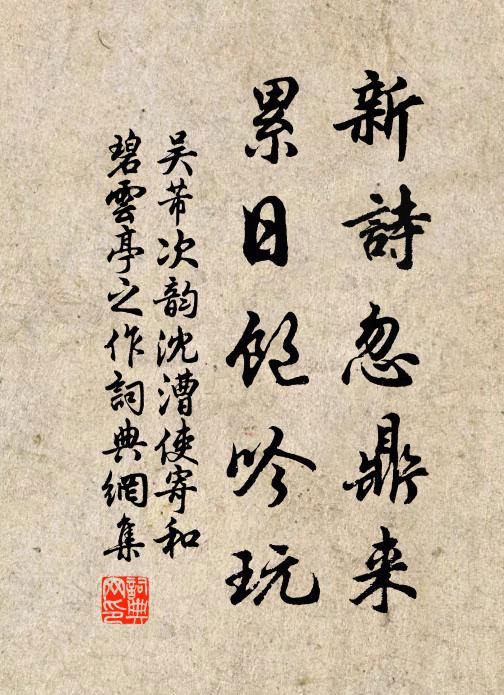 新詩忽鼎来
累日飽吟玩
吴芾次韵沈漕使寄和
碧雲亭之作詞典網集
詞典网印